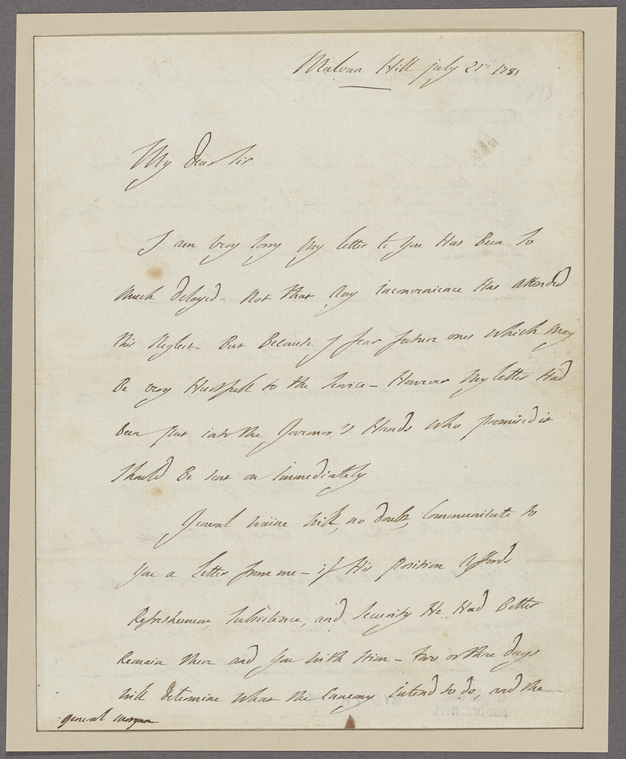 Malvan Hill july 21st 1781
My dear Sir
I am very sorry My letter to you Has Been So
Much delayed - Not that Any inconvenience Has Attended
this Neglect - But Because I fear future ones which May
Be very Hurtfull to the Service - However My letter Had
Been put into the Governor's Hands who promised it
Should Be sent on immediately
General waine will, no doubt, Communicate to
You a letter from me - if His position Affords
Refreshement, Subsistence, and Security He Had Better
Remain there and you with Him - two or three days
will determine what the Ennemy intend to do, and the
general Morgan